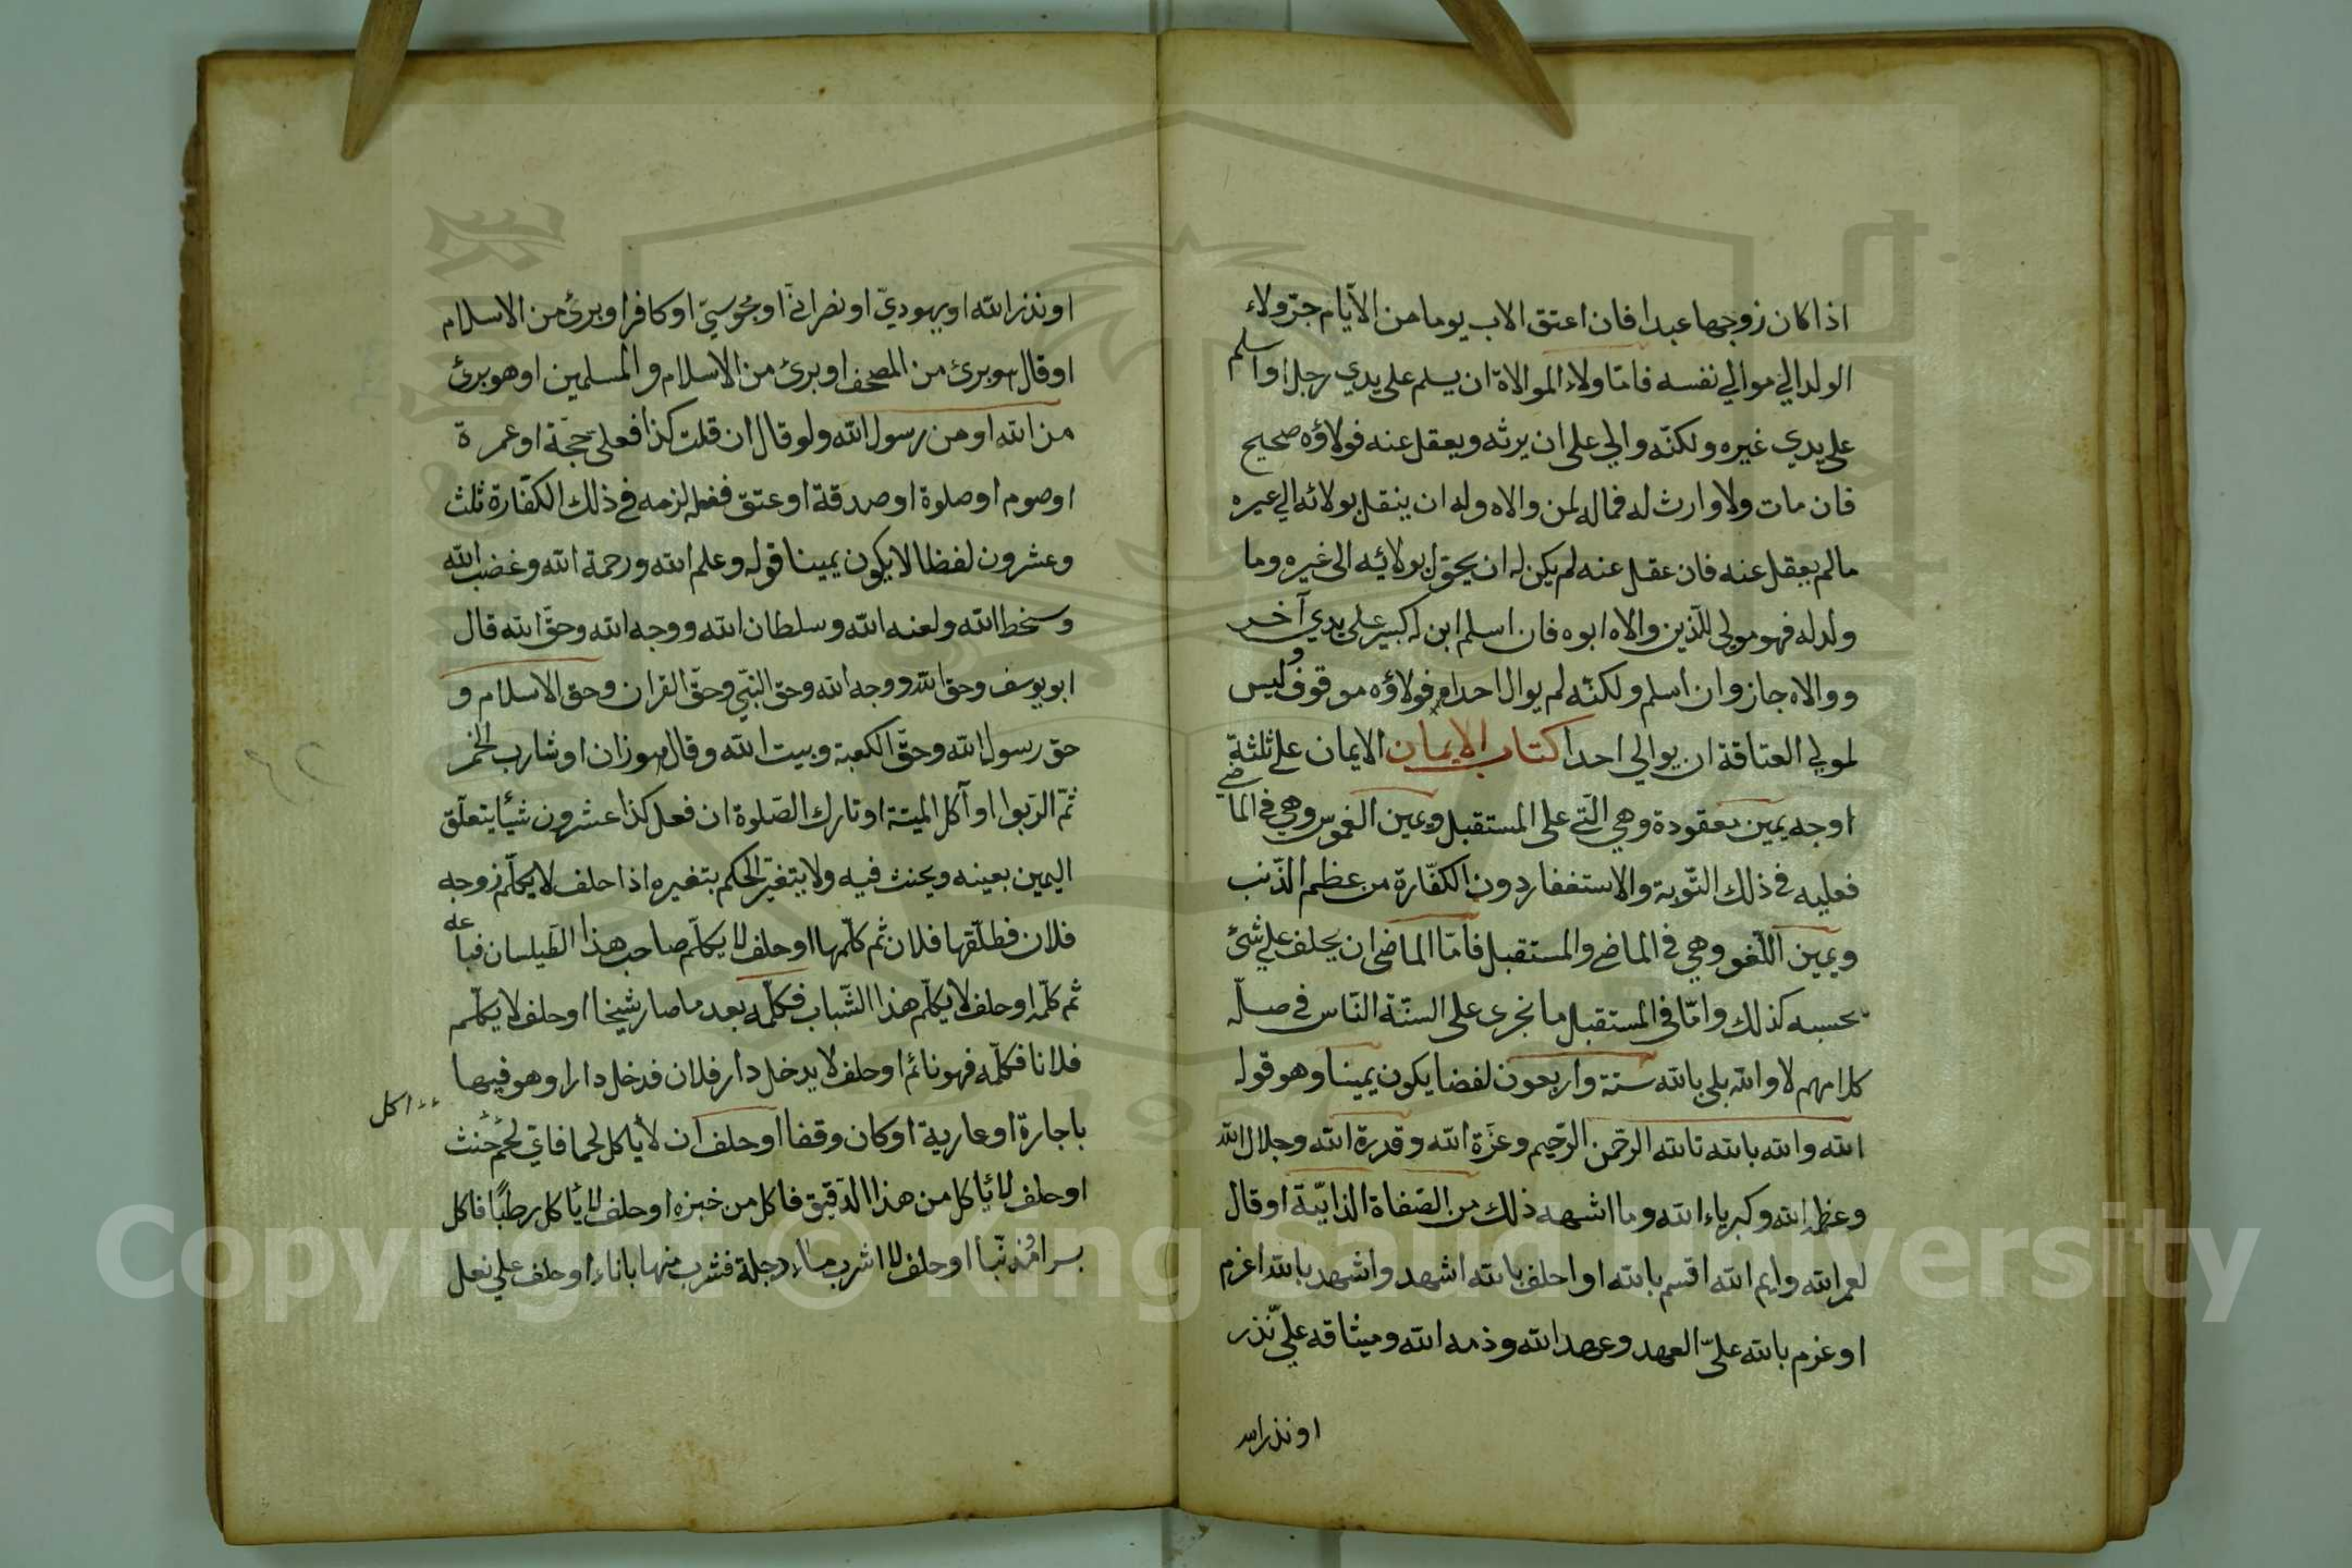 اذا كان زوجها عبدا فان اعتق الاب يوما من الايّام جرّ ولاء
الولد الي موالي نفسه فامّا ولاء الموالاة ان يسلم على يدي رجل او اسلم
على يدي غيره ولكنّه والي على ان يرثه ويعقل عنه فولاؤه صحيح
فان مات ولا وارث له فماله لمن والاه وله ان ينقل بولائه الي عيره
مالم يعقل عنه فان عقل عنه لم يكن له ان يحوّل بولائه الى غيره وما
ولد له فهو مولى للّذين والاه ابوه فان اسلم ابن له كبير على يدي آخر
ووالاه جاز وان اسلم ولكنّه لم يوال احدا فولاؤه موقوف وليس
لمولي العتاقة ان يوالي احدا كتاب الايمان الايمان على ثلثة
اوجه يمين معقودة وهي الّتي على المستقبل ويمين الغموس وهي في الماضي
فعليه في ذلك التّوبة والاستغفار دون الكفّارة من عظم الذّنب
ويمين اللّغو وهي في الماضي والمستقبل فامّا الماضى ان يحلف علي شئ
يحسبه كذلك وامّا في المستقبل ما تجرى على السنّة النّاس في صلّه
كلامهم لا والله بلى بالله ستة واربعون لفضا يكون يمينا وهو قوله
الله والله بالله تالله الرحمن الرّحيم وعزّة الله وقدرة الله وجلال الله
وعظمة الله وكبرياء الله وما اشبهه ذلك من الصّفاة الذاتيّة او قال
لعمر الله وايم الله اقسم بالله او احلف بالله اشهد واشهد بالله اعزم
او عزم بالله عليّ العهد وعهد الله وذمه الله وميثاقه علي نّذر
او نذر الله
او نذر الله او يهوديّ او نصرانيّ او مجوسيّ او كافر او برئ من الاسلام
او قال هو برئ من المصحف او برئ من الاسلام والمسلمين او هو برئ
من الله او من رسول الله ولو قال ان قلت كذا فعلي حجّة او عمرة
او صوم او صلوة او صدقة او عتق ففعل لزمه في ذلك الكفّارة ثلث
وعشرون لفظا لا يكون يمينا قوله وعلم الله ورحمة الله وغضب الله
وسخط الله ولعنه الله وسلطان الله ووجه الله وحقّ الله قال
ابو يوسف وحق الله ووجه الله وحق النبّي وحقّ القران وحق الاسلام و
حق رسول الله وحقّ الكعبة وبيت الله وقال هو زان او شارب الخمر
ثمّ الرّبوا او آكل الميتة او تارك الصّلوة ان فعل كذا عشرون شيئا يتعلّق
اليمين بعينه ويحنث فيه ولا يتغيّر الحكم بتغيره اذا حلف لا يكلّم زوجه
فلان فطلّقها فلان ثم كلّمها او حلف لا يكلّم صاحب هذا الطّيلسان فباعه
ثم كلّمه او حلف لا يكلّم هذا الشّباب فكلّمه بعد ما صار شيخا او حلف لا يكلّم
فلانا فكلّمه فهو نائم او حلف لا يدخل دار فلان فدخل دارا وهو فيها
باجارة او عارية او كان وقفا او حلف ان لا يأكل لحما فاي لحم حنث
اكل
او حلف لا يأكل من هذا الدّقيق فاكل من خبزه او حلف لا يأكل رطبًا فاكل
بسرا مُذنّبا او حلف لا اشرب ماء دجلة فشرب منها باناء او حلف علي نعل
Copyright © King Saud University